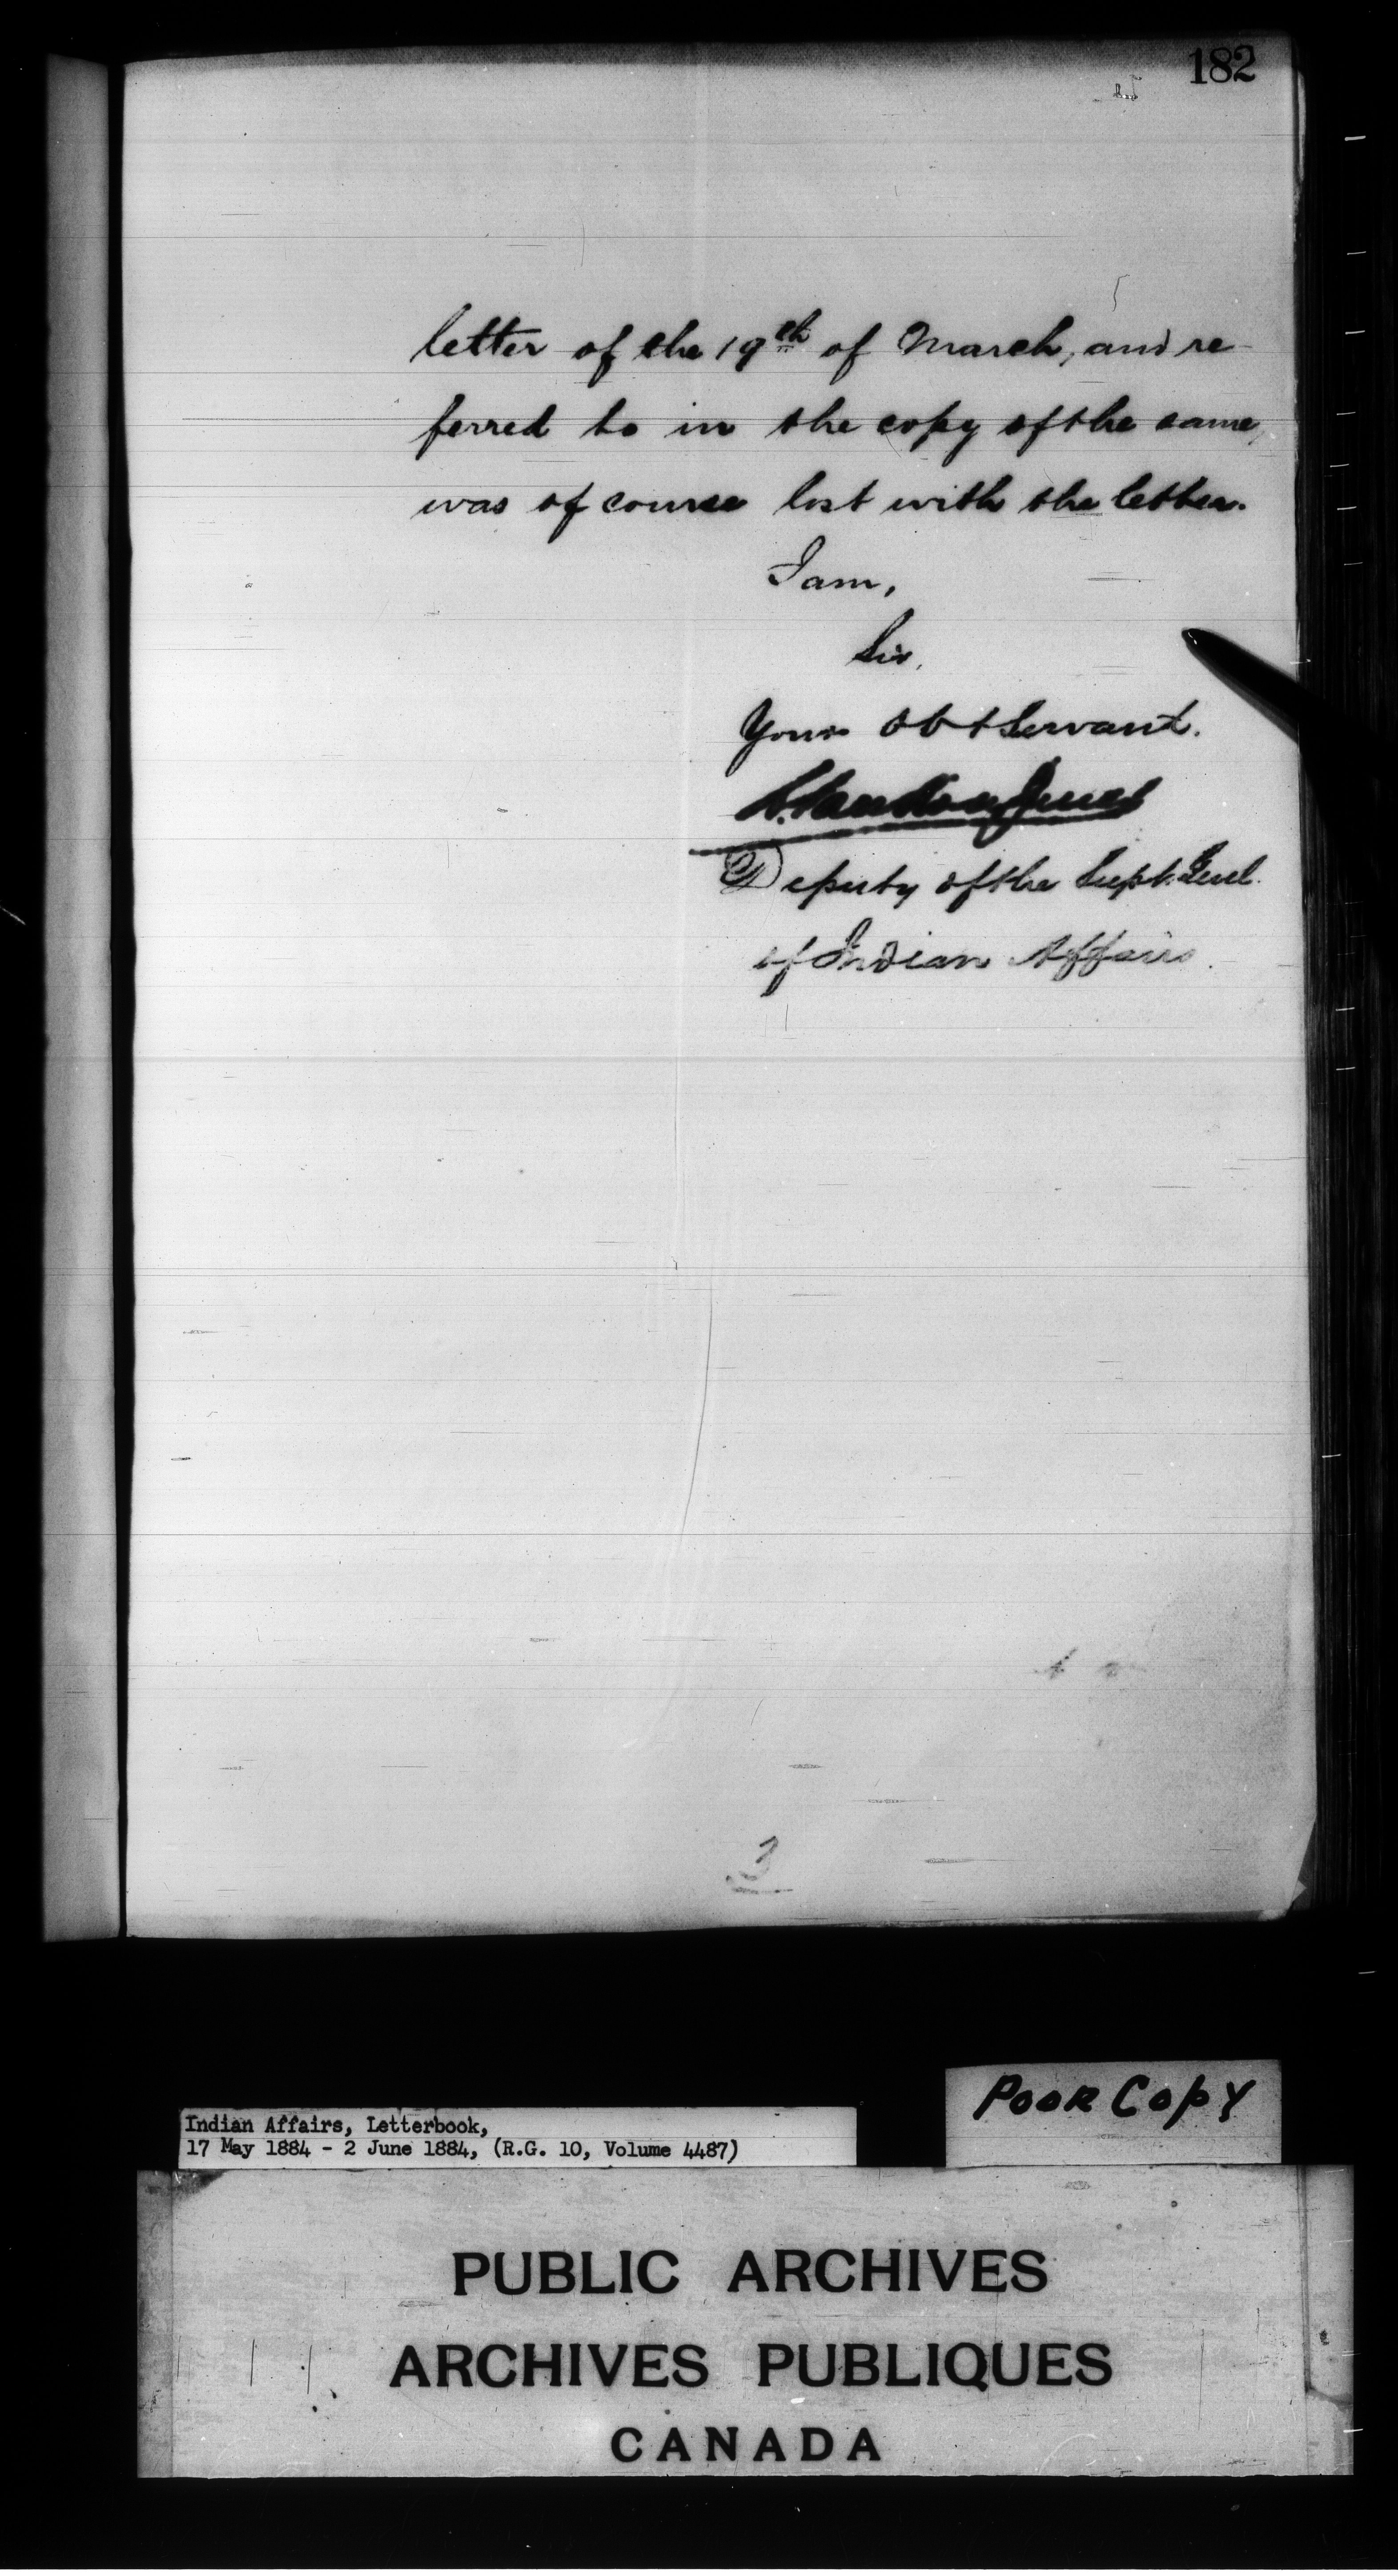 182
letter of the 19th of March, and re-
ferred to in the copy of the same,
was of course lost with the letter.
I am,
Sir,
Your obt Servant.
L. VanKoughnet
Deputy of the Supt. Genl.
of Indian Affairs.
3
Poor Copy
Indian Affairs, Letterbook,
17 May 1884 - 2 June 1884, (R.G. 10, Volume 4487)
PUBLIC ARCHIVES
ARCHIVES PUBLIQUES
CANADA